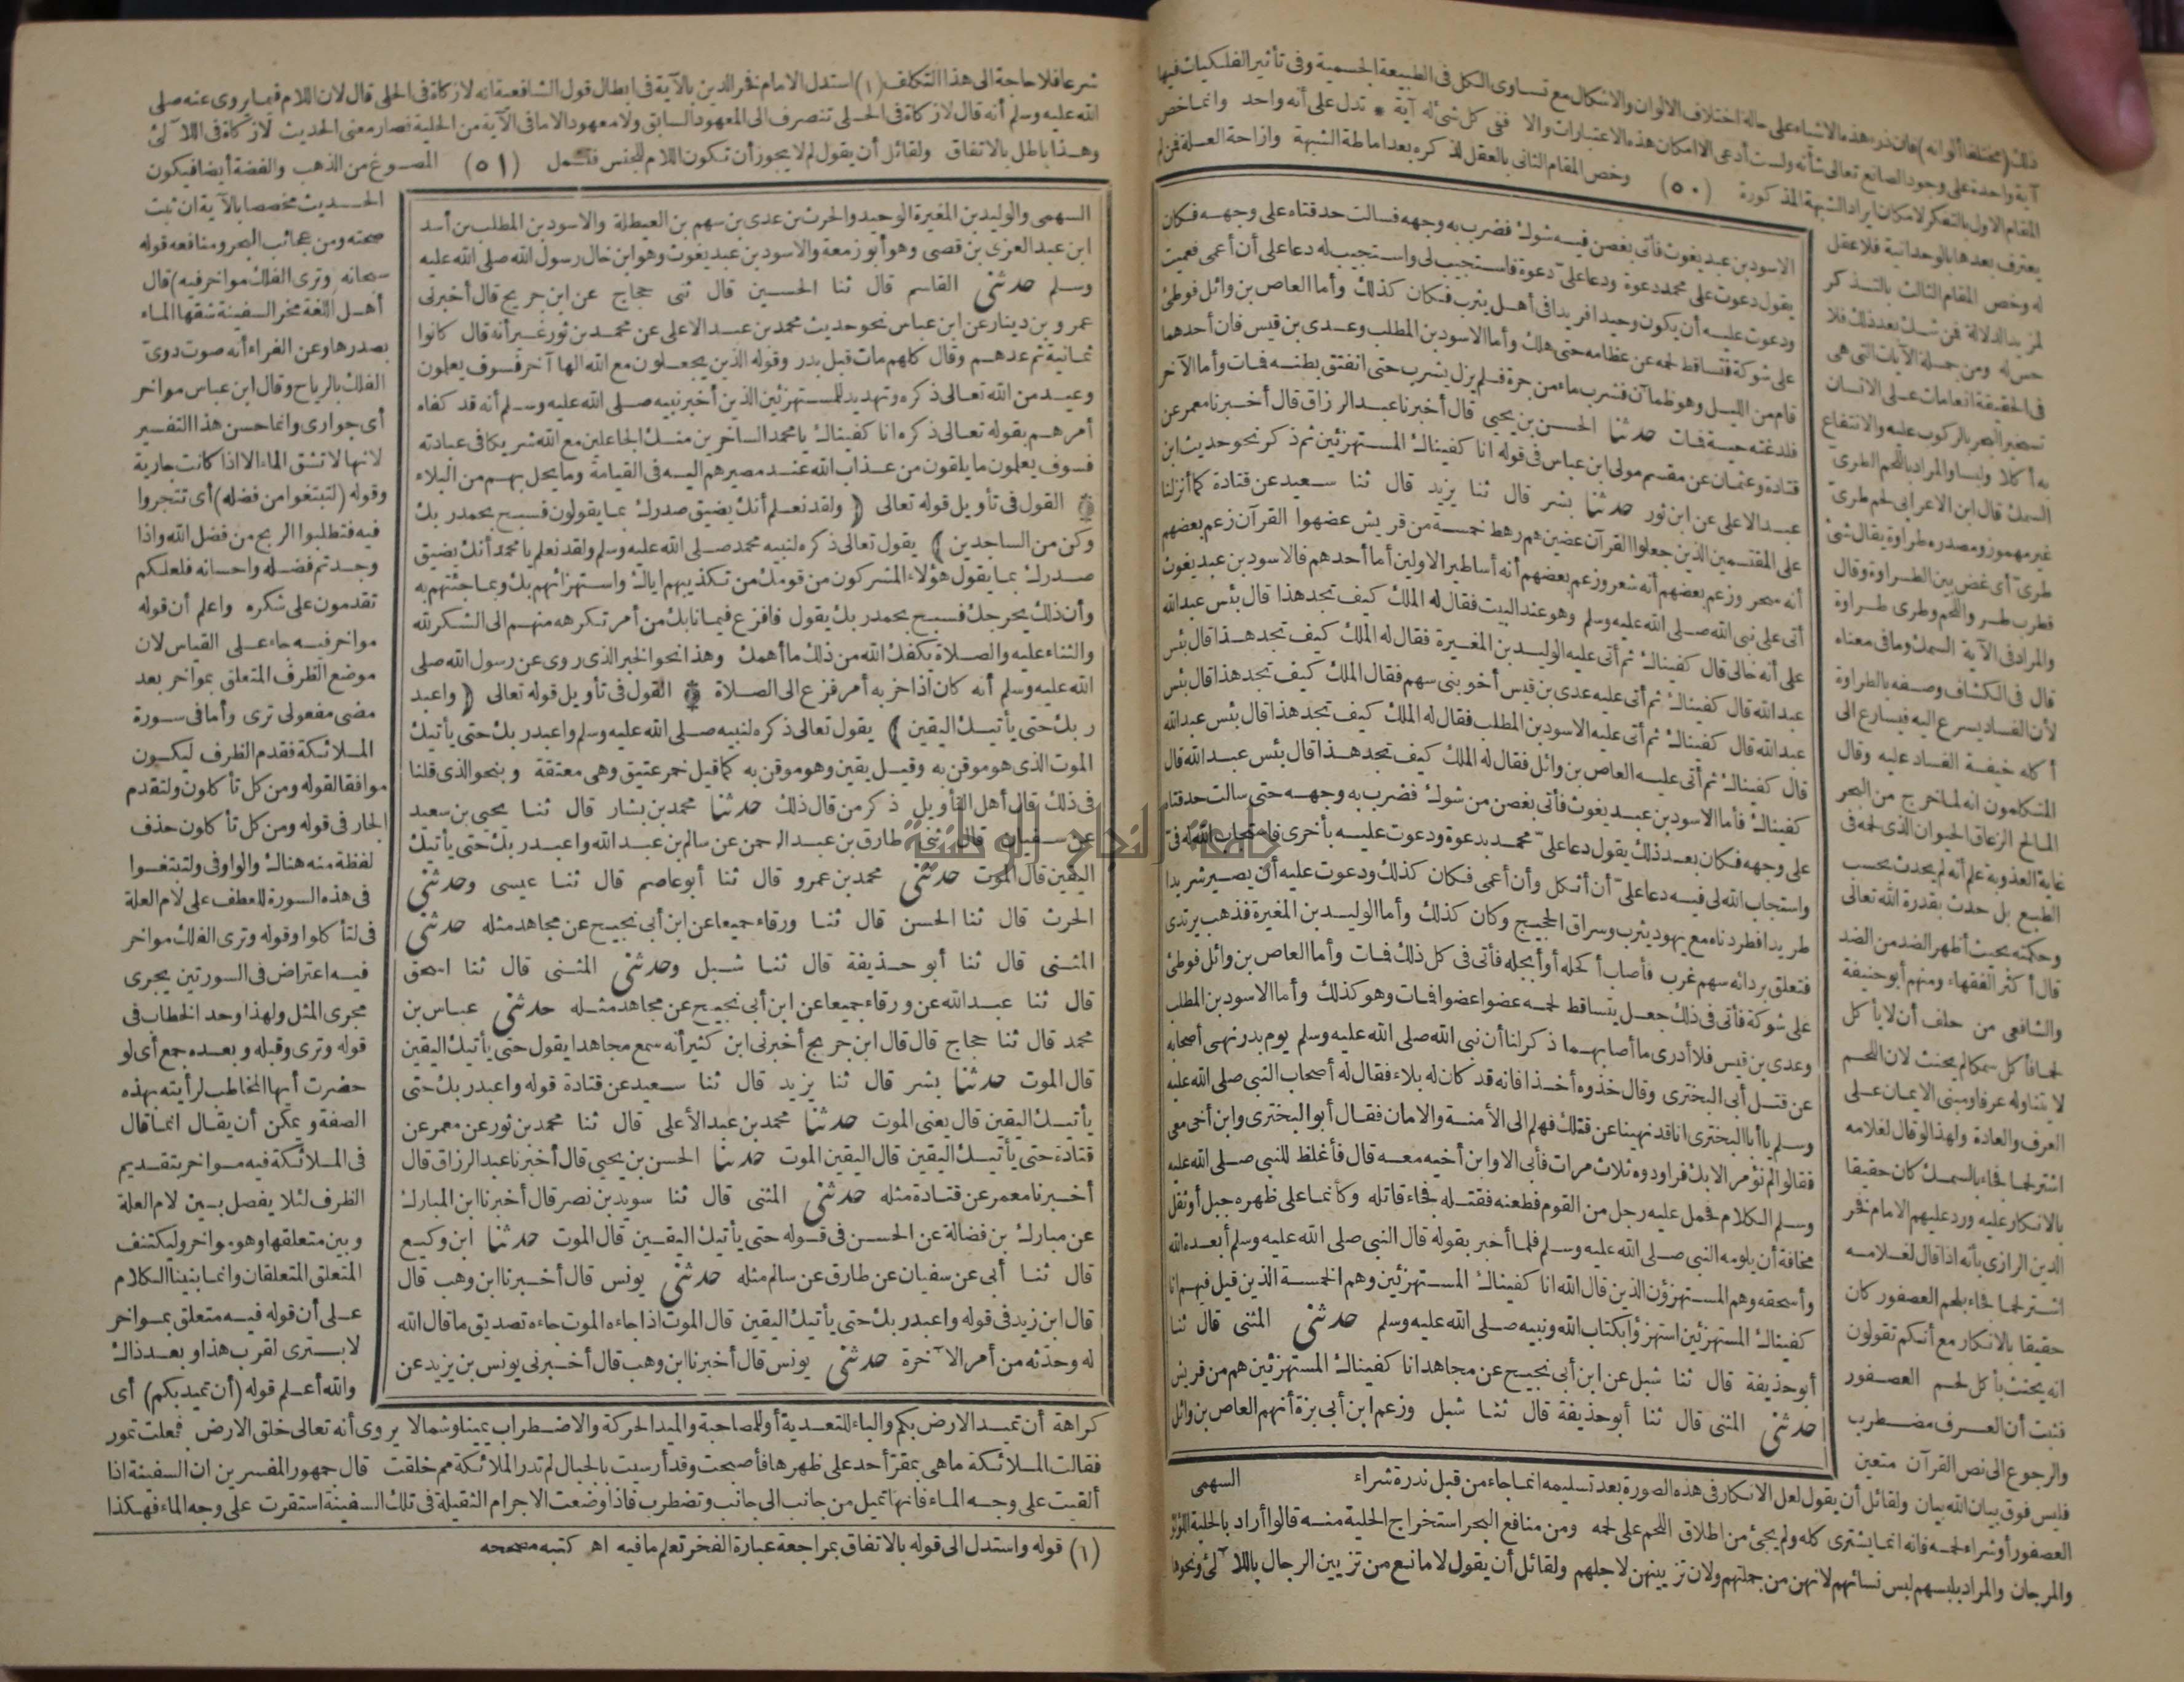 ذلك (مختلفا ألوانه) فان ذرء هذه الاشياء على حالة اختلاف الالوان والاشكال مع تساوى الكل فى الطبيعة الجسمية وفى تأثير الفلكيات فيها
آية واحدة على وجود الصانع تعالى شأنه ولست أدعى الا امكان هذه الاعتبارات والا ففى كل شئ له آية * تدل على أنه واحد وانما خص
المقام الاول بالتفكر لامكان ايراد الشبهة المذكورة (٥٠) وخص المقام الثانى بالعقل لذكره بعد اماطة الشبهة وازاحة العلة فمن لم
يعترف بعدها بالوحدانية فلا عقل
له وخص المقام الثالث بالتذكر
لمزيد الدلالة فمن شك بعد ذلك فلا
حس له ومن جملة الآيات التى هى
فى الحقيقة انعامات على الانسان
تسخير البحر بالركوب عليه والانتفاع
به أكلا ولبسا والمراد باللحم الطرى
السمك قال ابن الاعرابى لحم طرى
غير مهموز ومصدره طراوة يقال شئ
طرى أى غض بين الطراوة وقال
قطرب طرو اللحم وطرى طراوة
والمراد فى الآية السمك وما فى معناه
قال فى الكشاف وصفه بالطراوة
لأن الفساد يسرع اليه فيسارع الى
أكله خيفة الفساد عليه وقال
المتكلمون انه لما خرج من البحر
المالح الزعاق الحيوان الذى لحمه فى
غاية العذوبة علم أنه لم يحدث بحسب
الطبع بل حدث بقدرة الله تعالى
وحكمته بحيث أظهر الضد من الضد
قال أكثر الفقهاء ومنهم أبو حنيفة
والشافعى من حلف أن لا يأكل
لحما فأكل سمكا لم يحنث لان اللحم
لا يتناوله عرفا ومبنى الايمان على
العرف والعادة ولهذا لو قال لغلامه
اشتر لحما فجاء بالسمك كان حقيقا
بالانكار عليه ورد عليهم الامام فخر
الدين الرازى بأنه اذا قال لغلامه
اشتر لحما فجاء بلحم العصفور كان
حقيقا بالانكار مع أنكم تقولون
انه يحنث بأكل لحم العصفور
فثبت أن العرف مضطرب
والرجوع الى نص القرآن متعين
الاسود بن عبد يغوث فأتى بغصن فيه شوك فضرب به وجهه فسالت حدقتاه على وجهه فكان
يقول دعوت على محمد دعوة ودعا علىّ دعوة فاستجيب لى واستجيب له دعا على أن أعمى فعميت
ودعوت عليه أن يكون وحيدا فريدا فى أهل يثرب فكان كذلك وأما العاص بن وائل فوطئ
على شوكة فتساقط لحمه عن عظامه حتى هلك وأما الاسود بن المطلب وعدى بن قيس فان أحدهما
قام من الليل وهو ظمآن فشرب ماء من جرة فلم يزل يشرب حتى انفتق بطنه فمات وأما الآخر
فلدغته حية فمات حدثنا الحسن بن يحيى قال أخبرنا عبد الرزاق قال أخبرنا معمر عن
قتادة وعثمان عن مقسم مولى ابن عباس فى قوله انا كفيناك المستهزئين ثم ذكر نحو حديث ابن
عبد الاعلى عن ابن ثور حدثنا بشر قال ثنا يزيد قال ثنا سعيد عن قتادة كما أنزلنا
على المقتسمين الذين جعلوا القرآن عضين هم رهط خمسة من قريش عضهوا القرآن زعم بعضهم
أنه سحر وزعم بعضهم أنه شعر وزعم بعضهم أنه أساطير الاولين أما أحدهم فالاسود بن عبد يغوث
أتى على نبى الله صلى الله عليه وسلم وهو عند البيت فقال له الملك كيف تجد هذا قال بئس عبد الله
على أنه خالى قال كفيناك ثم أتى عليه الوليد بن المغيرة فقال له الملك كيف تجد هذا قال بئس
عبد الله قال كفيناك ثم أتى عليه عدى بن قيس أخو بنى سهم فقال الملك كيف تجد هذا قال بئس
عبد الله قال كفيناك ثم أتى عليه الاسود بن المطلب فقال له الملك كيف تجد هذا قال بئس عبد الله
قال كفيناك ثم أتى عليه العاص بن وائل فقال له الملك كيف تجد هذا قال بئس عبد الله قال
كفيناك فأما الاسود بن عبد يغوث فأتى بغصن من شوك فضرب به وجهه حتى سالت حدقتاه
على وجهه فكان بعد ذلك يقول دعا علىّ محمد بدعوة ودعوت عليه بأخرى فاستجاب الله له فىّ
واستجاب الله لى فيه دعا علىّ أن أثكل وأن أعمى فكان كذلك ودعوت عليه أن يصير شريدا
طريدا فطردناه مع يهود يثرب وسراق الحجيج وكان كذلك وأما الوليد بن المغيرة فذهب يرتدى
فتعلق بردائه سهم غرب فأصاب أكحله أو أبجله فأتى فى كل ذلك فمات وأما العاص بن وائل فوطئ
على شوكة فأتى فى ذلك جعل يتساقط لحمه عضوا عضوا فمات وهو كذلك وأما الاسود بن المطلب
وعدى بن قيس فلا أدرى ما أصابهما ذكر لنا أن نبى الله صلى الله عليه وسلم يوم بدر نهى أصحابه
عن قتل أبى البخترى وقال خذوه أخذا فانه قد كان له بلاء فقال له أصحاب النبى صلى الله عليه
وسلم يا أبا البخترى انا قد نهينا عن قتلك فهلم الى الأمنة والامان فقال أبو البخترى وابن أخى معى
فقالوا لم نؤمر الا بك فراودوه ثلاث مرات فأبى الا وابن أخيه معه قال فأغلظ للنبى صلى الله عليه
وسلم الكلام فحمل عليه رجل من القوم فطعنه فقتله فجاء قاتله وكأنما على ظهره جبل أوثقل
مخافة أن يلومه النبى صلى الله عليه وسلم فلما أخبر بقوله قال النبى صلى الله عليه وسلم أبعده الله
وأسحقه وهم المستهزؤن الذين قال الله انا كفيناك المستهزئين وهم الخمسة الذين قيل فيهم انا
كفيناك المستهزئين استهزؤا بكتاب الله ونبيه صلى الله عليه وسلم حدثنى المثنى قال ثنا
أبو حذيفة قال ثنا شبل عن ابن أبى نجيح عن مجاهد انا كفيناك المستهزئين هم من قريش
حدثنى المثنى قال ثنا أبو حذيفة قال ثنا شبل وزعم ابن أبى بزة أنهم العاص بن وائل
السهمى
فليس فوق بيان الله بيان ولقائل أن يقول لعل الانكار فى هذه الصورة بعد تسليمه انما جاء من قبل ندرة شراء
العصفور أو شراء لحمه فانه انما يشترى كله ولم يجئ من اطلاق اللحم على لحمه ومن منافع البحر استخراج الحلية منه قالوا أراد بالحلية اللؤلؤ
والمرجان والمراد بلبسهم لبس نسائهم لانهن من جملتهم ولان تزيينهن لاجلهم ولقائل أن يقول لا مانع من تزيين الرجال باللآلئ ونحوها
شرعا فلا حاجة الى هذا التكلف (١) استدل الامام فخر الدين بالآية فى ابطال قول الشافعية انه لا زكاة فى الحلى قال لان اللام فيما يروى عنه صلى
الله عليه وسلم أنه قال لا زكاة فى الحلى تنصرف الى المعهود السابق ولا معهود الا ما فى الآية من الحلية فصار معنى الحديث لا زكاة فى اللآلئ
وهذا باطل بالاتفاق ولقائل أن يقول لم لا يجوز أن تكون اللام للجنس فتشمل (٥١) المصوغ من الذهب والفضة أيضا فيكون
الحديث مخصصا بالآية ان ثبت
صحته ومن عجائب البحر ومنافعه قوله
سبحانه (وترى الفلك مواخر فيه) قال
أهل اللغة مخر السفينة شقها الماء
بصدرها وعن الفراء أنه صوت دوى
الفلك بالرياح وقال ابن عباس مواخر
أى جوارى وانما حسن هذا التفسير
لانها لا تشق الماء الا اذا كانت جارية
وقوله (لتبتغوا من فضله) أى تتجروا
فيه فتطلبوا الربح من فضل الله واذا
وجدتم فضله واحسانه فلعلكم
تقدمون على شكره واعلم أن قوله
مواخر فيه جاء على القياس لان
موضع الظرف المتعلق بمواخر بعد
مضى مفعولى ترى وأما فى سورة
الملائكة فقدم الظرف ليكون
موافقا لقوله ومن كل تأكلون ولتقدم
الجار فى قوله ومن كل تأكلون حذف
لفظة منه هناك والواو فى ولتبتغوا
فى هذه السورة للعطف على لام العلة
فى لتأكلوا وقوله وترى الفلك مواخر
فيه اعتراض فى السورتين يجرى
مجرى المثل ولهذا وحد الخطاب فى
قوله وترى وقبله وبعده جمع أى لو
حضرت أيها المخاطب لرأيته بهذه
الصفة ويمكن أن يقال انما قال
فى الملائكة فيه مواخر بتقديم
الظرف لئلا يفصل بين لام العلة
وبين متعلقها وهو مواخر وليكتنف
المتعلق المتعلقان وانما بنينا الكلام
على أن قوله فيه متعلق بمواخر
لا بترى لقرب هذا وبعد ذاك
والله أعلم قوله (أن تميد بكم) أى
السهمى والوليد بن المغيرة الوحيد والحرث بن عدى بن سهم بن العيطلة والاسود بن المطلب بن أسد
ابن عبد العزى بن قصى وهو أبو زمعة والاسود بن عبد يغوث وهو ابن خال رسول الله صلى الله عليه
وسلم حدثنى القاسم قال ثنا الحسين قال ثنى حجاج عن ابن جريج قال أخبرنى
عمرو بن دينار عن ابن عباس نحو حديث محمد بن عبد الاعلى عن محمد بن ثور غير أنه قال كانوا
ثمانية ثم عدهم وقال كلهم مات قبل بدر وقوله الذين يجعلون مع الله الها آخر فسوف يعلمون
وعيد من الله تعالى ذكره وتهديد للمستهزئين الذين أخبر نبيه صلى الله عليه وسلم أنه قد كفاه
أمرهم بقوله تعالى ذكره انا كفيناك يا محمد الساخرين منك الجاعلين مع الله شريكا فى عبادته
فسوف يعلمون ما يلقون من عذاب الله عند مصيرهم اليه فى القيامة وما يحل بهم من البلاء
القول فى تأويل قوله تعالى (ولقد نعلم أنك يضيق صدرك بما يقولون فسبح بحمد ربك
وكن من الساجدين) يقول تعالى ذكره لنبيه محمد صلى الله عليه وسلم ولقد نعلم يا محمد أنك يضيق
صدرك بما يقول هؤلاء المشركون من قومك من تكذيبهم اياك واستهزائهم بك وبما جئتهم به
وأن ذلك يحرجك فسبح بحمد ربك يقول فافزع فيما نابك من أمر تكرهه منهم الى الشكر لله
والثناء عليه والصلاة يكفك الله من ذلك ما أهمك وهذا نحو الخبر الذى روى عن رسول الله صلى
الله عليه وسلم أنه كان اذا حزبه أمر فزع الى الصلاة القول فى تأويل قوله تعالى (واعبد
ربك حتى يأتيك اليقين) يقول تعالى ذكره لنبيه صلى الله عليه وسلم واعبد ربك حتى يأتيك
الموت الذى هو موقن به وقيل يقين وهو موقن به كما قيل خمر عتيق وهى معتقة وبنحو الذى قلنا
فى ذلك قال أهل التأويل ذكر من قال ذلك حدثنا محمد بن بشار قال ثنا يحيى بن سعيد
عن سفيان قال ثنى طارق بن عبد الرحمن عن سالم بن عبد الله واعبد ربك حتى يأتيك
اليقين قال الموت حدثنى محمد بن عمرو قال ثنا أبو عاصم قال ثنا عيسى وحدثنى
الحرث قال ثنا الحسن قال ثنا ورقاء جميعا عن ابن أبى نجيح عن مجاهد مثله حدثنى
المثنى قال ثنا أبو حذيفة قال ثنا شبل وحدثنى المثنى قال ثنا اسحق
قال ثنا عبد الله عن ورقاء جميعا عن ابن أبى نجيح عن مجاهد مثله حدثنى عباس بن
محمد قال ثنا حجاج قال قال ابن جريج أخبرنى ابن كثير أنه سمع مجاهدا يقول حتى يأتيك اليقين
قال الموت حدثنا بشر قال ثنا يزيد قال ثنا سعيد عن قتادة قوله واعبد ربك حتى
يأتيك اليقين قال يعنى الموت حدثنا محمد بن عبد الأعلى قال ثنا محمد بن ثور عن معمر عن
قتادة حتى يأتيك اليقين قال اليقين الموت حدثنا الحسن بن يحيى قال أخبرنا عبد الرزاق قال
أخبرنا معمر عن قتادة مثله حدثنى المثنى قال ثنا سويد بن نصر قال أخبرنا ابن المبارك
عن مبارك بن فضالة عن الحسن فى قوله حتى يأتيك اليقين قال الموت حدثنا ابن وكيع
قال ثنا أبى عن سفيان عن طارق عن سالم مثله حدثنى يونس قال أخبرنا ابن وهب قال
قال ابن زيد فى قوله واعبد ربك حتى يأتيك اليقين قال الموت اذا جاءه الموت جاءه تصديق ما قال الله
له وحدثه من أمر الآخرة حدثنى يونس قال أخبرنا ابن وهب قال أخبرنى يونس بن يزيد عن
كراهة أن تميد الارض بكم والباء للتعدية أو للمصاحبة والميد الحركة والاضطراب يمينا وشمالا يروى أنه تعالى خلق الارض فجعلت تمور
فقالت الملائكة ما هى بمقر أحد على ظهرها فأصبحت وقد أرسيت بالجبال لم تدر الملائكة مم خلقت قال جمهور المفسرين ان السفينة اذا
ألقيت على وجه الماء فانها تميل من جانب الى جانب وتضطرب فاذا وضعت الاجرام الثقيلة فى تلك السفينة استقرت على وجه الماء فهكذا
(١) قوله واستدل الى قوله بالاتفاق بمراجعة عبارة الفخر تعلم ما فيه اه كتبه مصححه
جامعة النجاح الوطنية